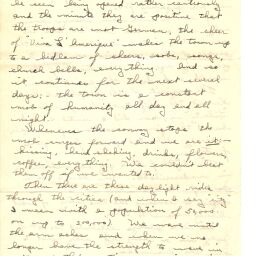 be seen being opened rather cautiously
and the minute they are positive that
the troops are not German, the cheer
of "Viva L'Amerique" wakes the town up
to a bedlam of cheers, sobs, songs,
church bells, everything. And so
it continues for the next several
days: the town is a constant
mob of humanity all day and all
night.
Whenever the convoy stops the
mob surges forward and we are it —
kissing, hand shaking, drinks, flowers,
coffee everything. We couldn't beat
them off if we wanted to.
Then there are these daylight rides
through the cities (and when I say city
I mean with a population of 50,000
on up to 200,000) We wave until
the arm aches and when we no
longer have the strength to wave in